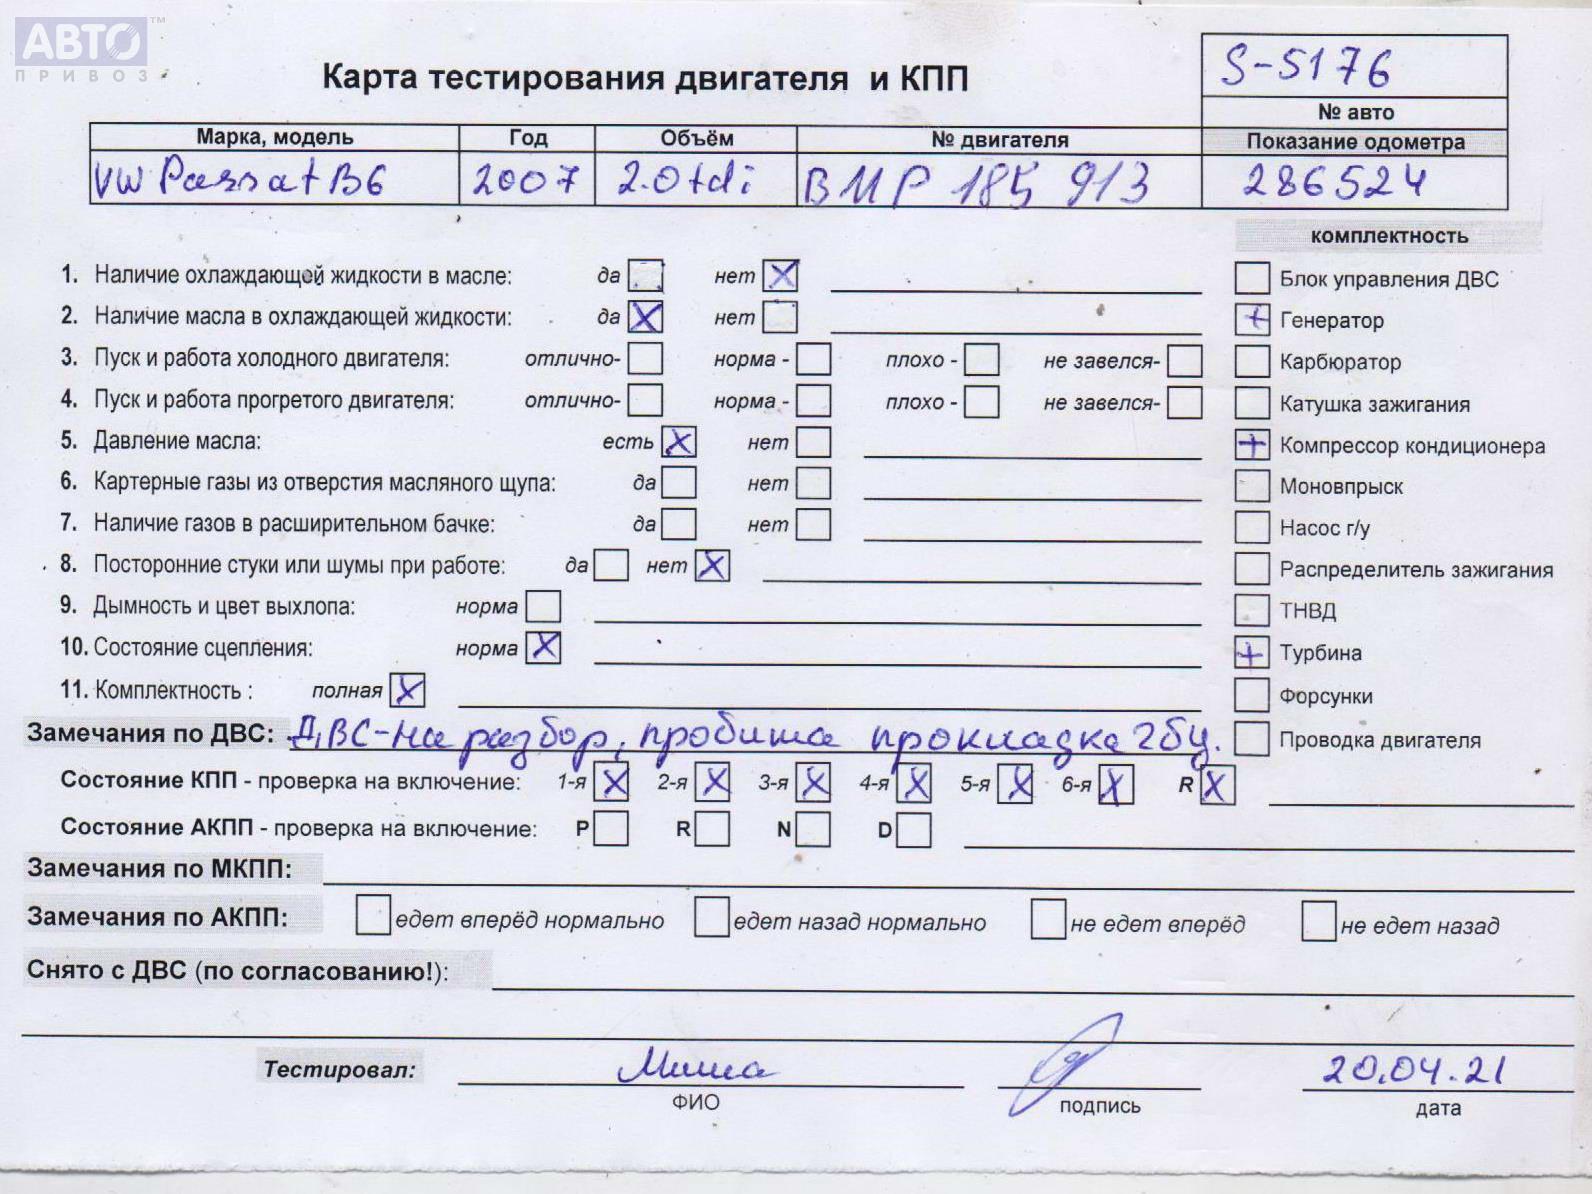 АВТО™
ПРИВОЗ
S-5176
Карта тестирования двигателя и КПП
№ авто
Марка, модель Год Объём № двигателя Показание одометра
VW Passat B6 2007 2.0 tdi BMP 185 913 286524
комплектность
1. Наличие охлаждающей жидкости в масле: да нет X Блок управления ДВС
2. Наличие масла в охлаждающей жидкости: да X нет + Генератор
3. Пуск и работа холодного двигателя: отлично- норма - плохо - не завелся- Карбюратор
4. Пуск и работа прогретого двигателя: отлично- норма - плохо - не завелся- Катушка зажигания
5. Давление масла: есть X нет + Компрессор кондиционера
6. Картерные газы из отверстия масляного щупа: да нет Моновпрыск
7. Наличие газов в расширительном бачке: да нет Насос г/у
8. Посторонние стуки или шумы при работе: да нет X Распределитель зажигания
9. Дымность и цвет выхлопа: норма ТНВД
10. Состояние сцепления: норма X + Турбина
11. Комплектность : полная X Форсунки
Замечания по ДВС: ДВС-на разбор, пробита прокладка гбц. Проводка двигателя
Состояние КПП - проверка на включение: 1-я X 2-я X 3-я X 4-я X 5-я X 6-я X R X
Состояние АКПП - проверка на включение: P R N D
Замечания по МКПП:
Замечания по АКПП: едет вперёд нормально едет назад нормально не едет вперёд не едет назад
Снято с ДВС (по согласованию!):
Тестировал: Миша 20.04.21
ФИО подпись дата